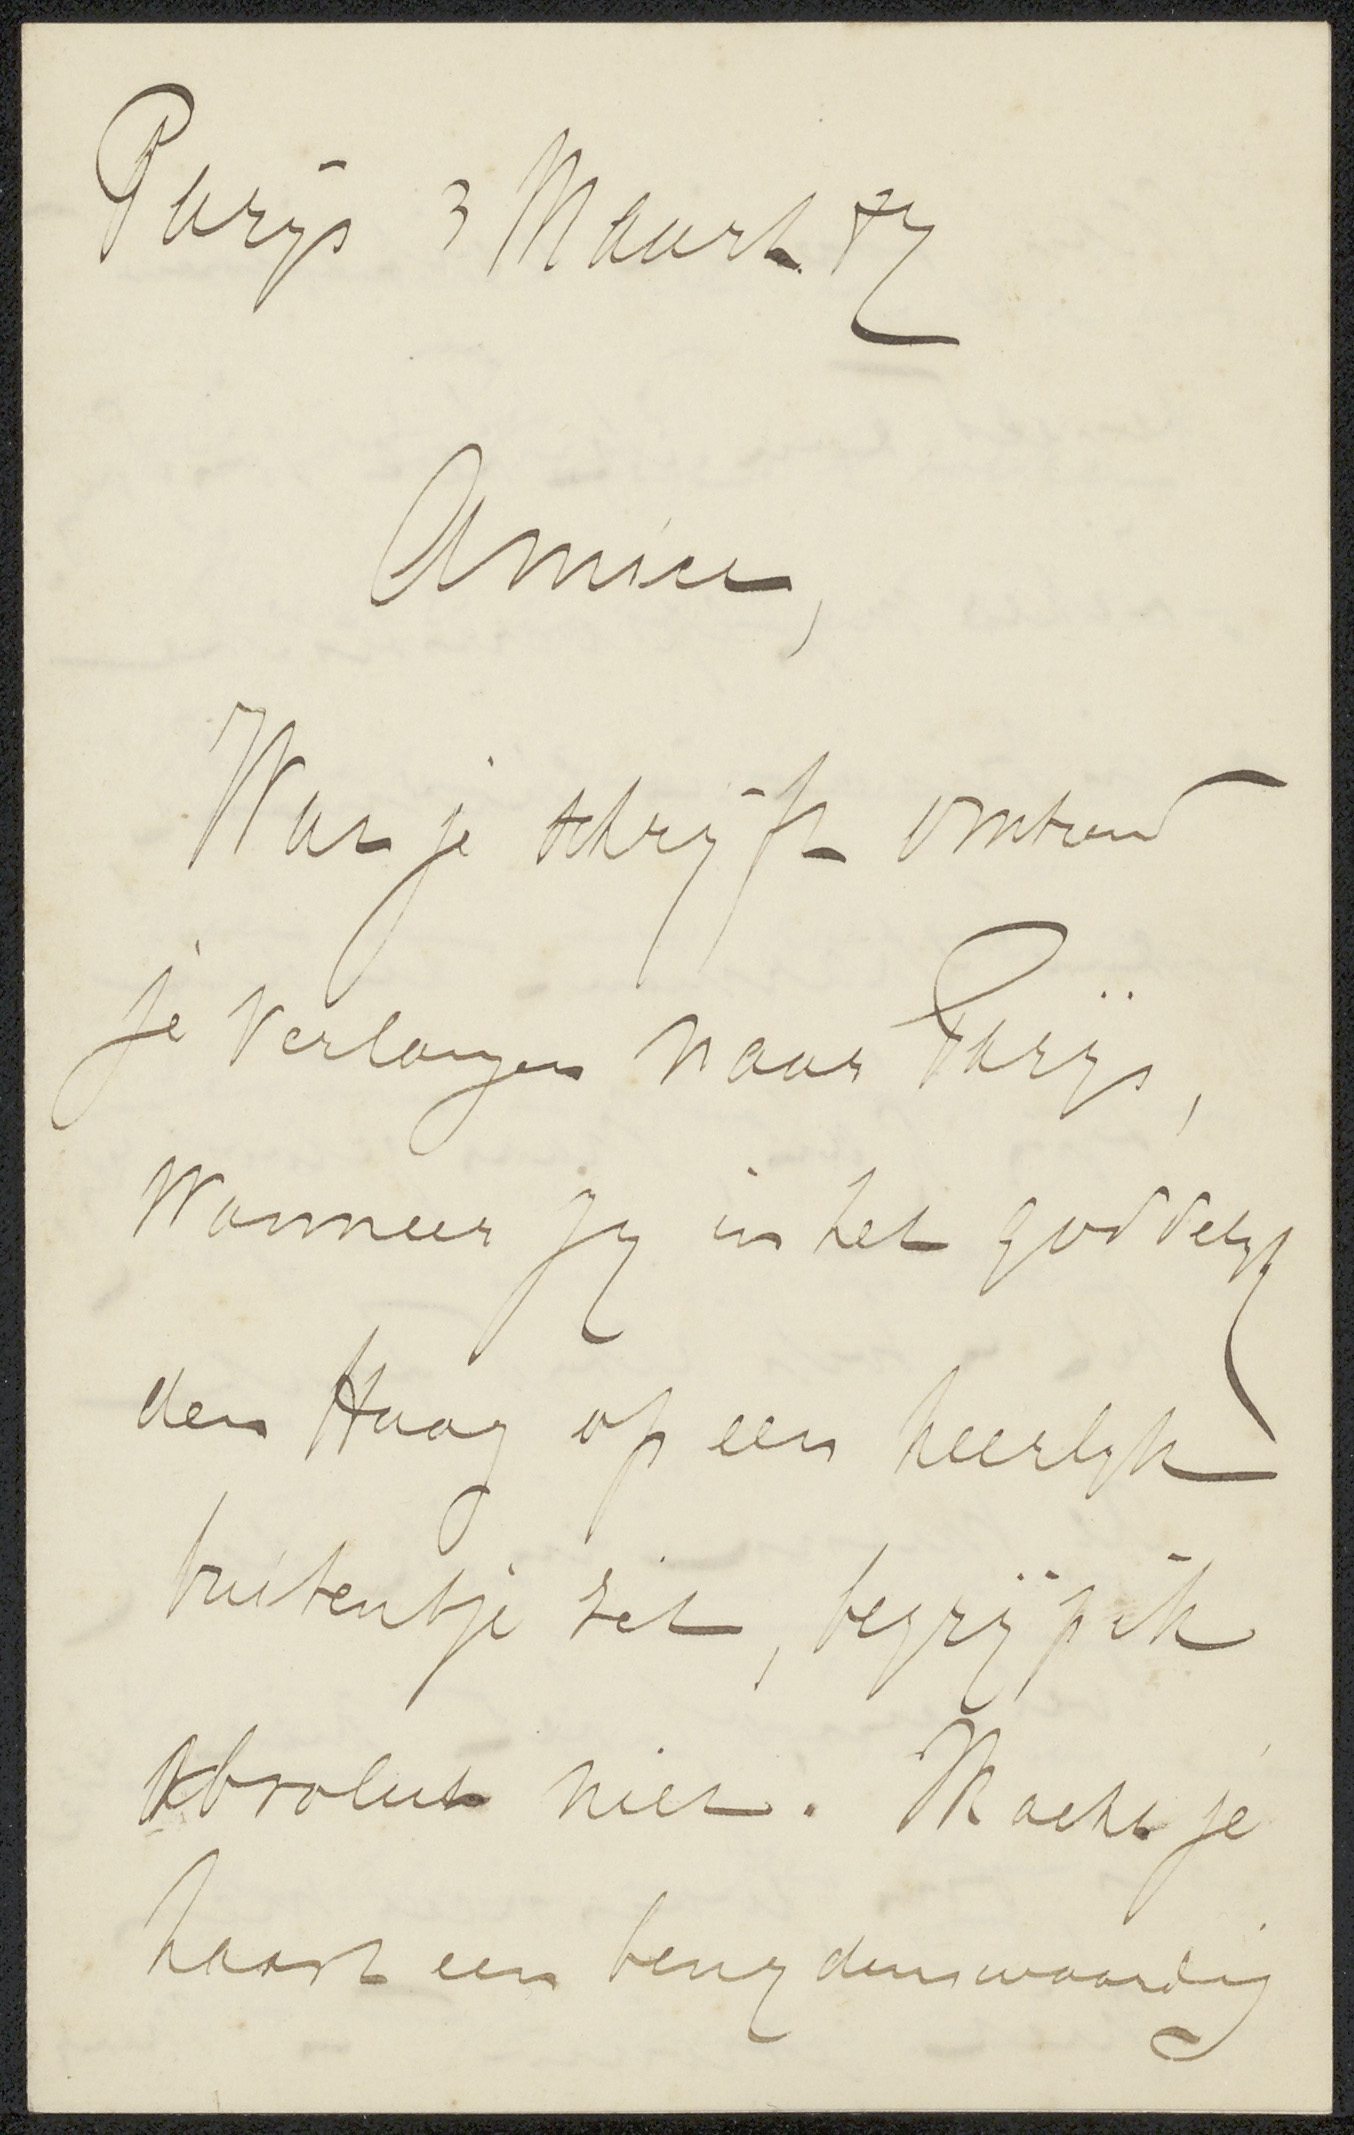 Parijs 3 Maart 87
Amice,
Wat je schrijft omtrent
je verlangen naar Parijs,
wanneer jy in het goddelyk
den Haag op een heerlyk
buitentje zit, begrijp ik
absoluut niet. Mocht je
haast een benydenswaardig